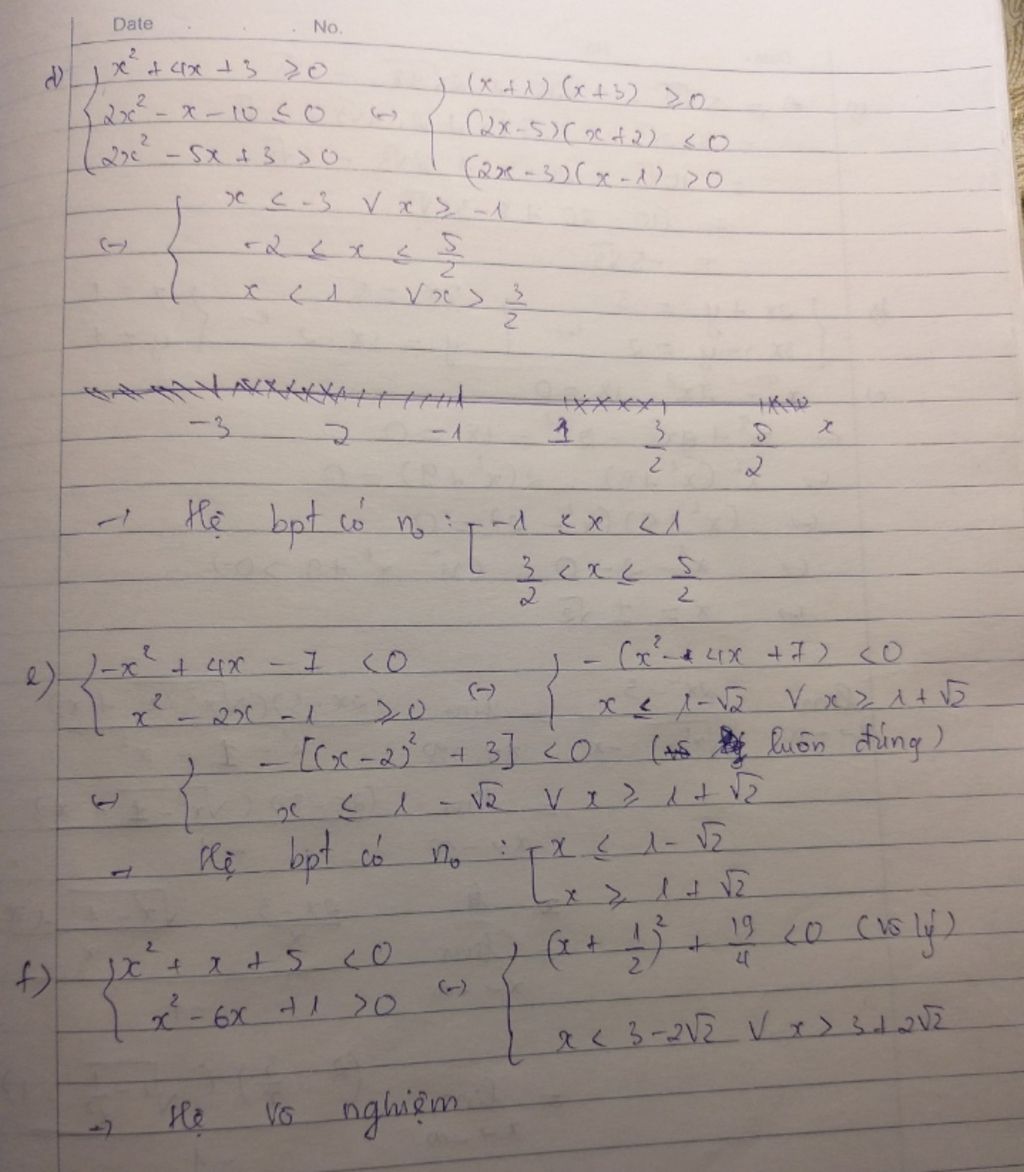 Date . . . No.
d) { x² + 4x + 3 ≥ 0
2x² - x - 10 ≤ 0
2x² - 5x + 3 > 0
⇔ { (x + 1)(x + 3) ≥ 0
(2x - 5)(x + 2) ≤ 0
(2x - 3)(x - 1) > 0
⇔ { x ≤ -3 ∨ x ≥ -1
-2 ≤ x ≤ 5/2
x < 1 ∨ x > 3/2
-3 2 -1 1 3/2 5/2 x
→ Hệ bpt có n₀ : [ -1 ≤ x < 1
3/2 < x ≤ 5/2
e) { -x² + 4x - 7 < 0
x² - 2x - 1 ≥ 0
⇔ { - (x² - 4x + 7) < 0
x ≤ 1 - √2 ∨ x ≥ 1 + √2
⇔ { - [(x - 2)² + 3] < 0 (luôn đúng)
x ≤ 1 - √2 ∨ x ≥ 1 + √2
→ Hệ bpt có n₀ : [ x ≤ 1 - √2
x ≥ 1 + √2
f) { x² + x + 5 < 0
x² - 6x + 1 > 0
⇔ { (x + 1/2)² + 19/4 < 0 (vô lý)
x < 3 - 2√2 ∨ x > 3 + 2√2
→ Hệ vô nghiệm